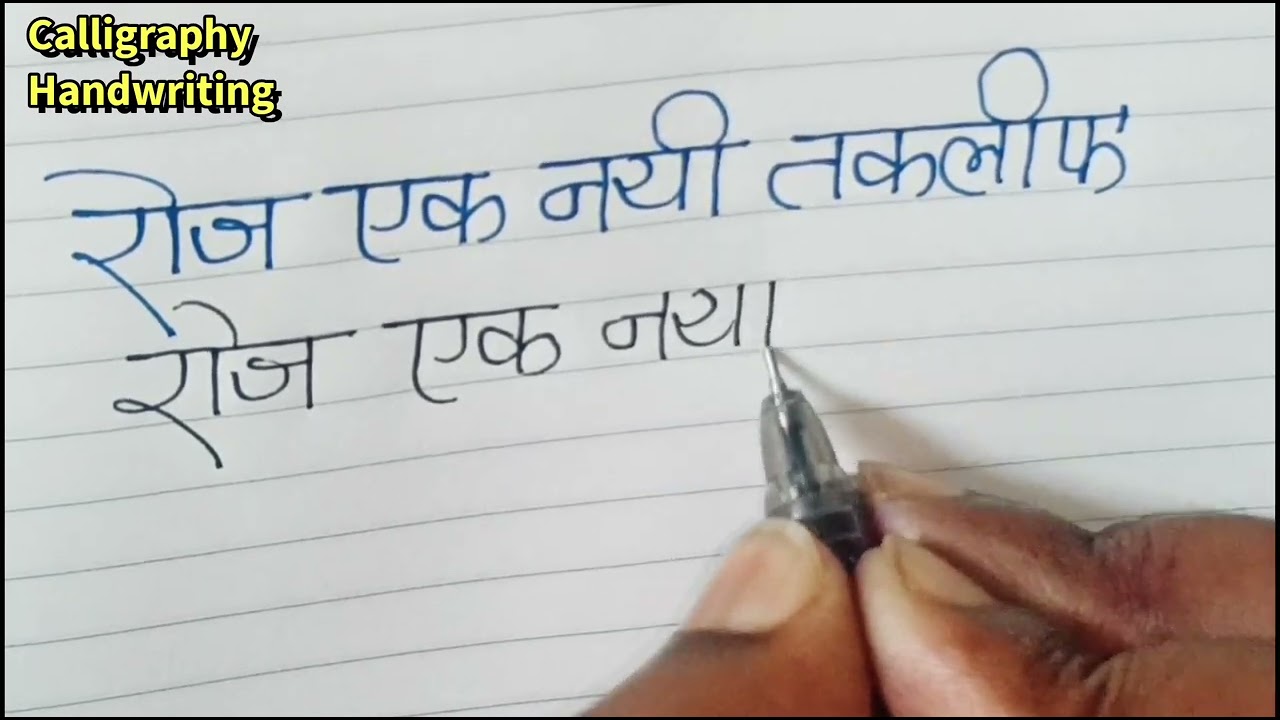 Calligraphy
Handwriting
रोज एक नयी तकलीफ
रोज एक नया